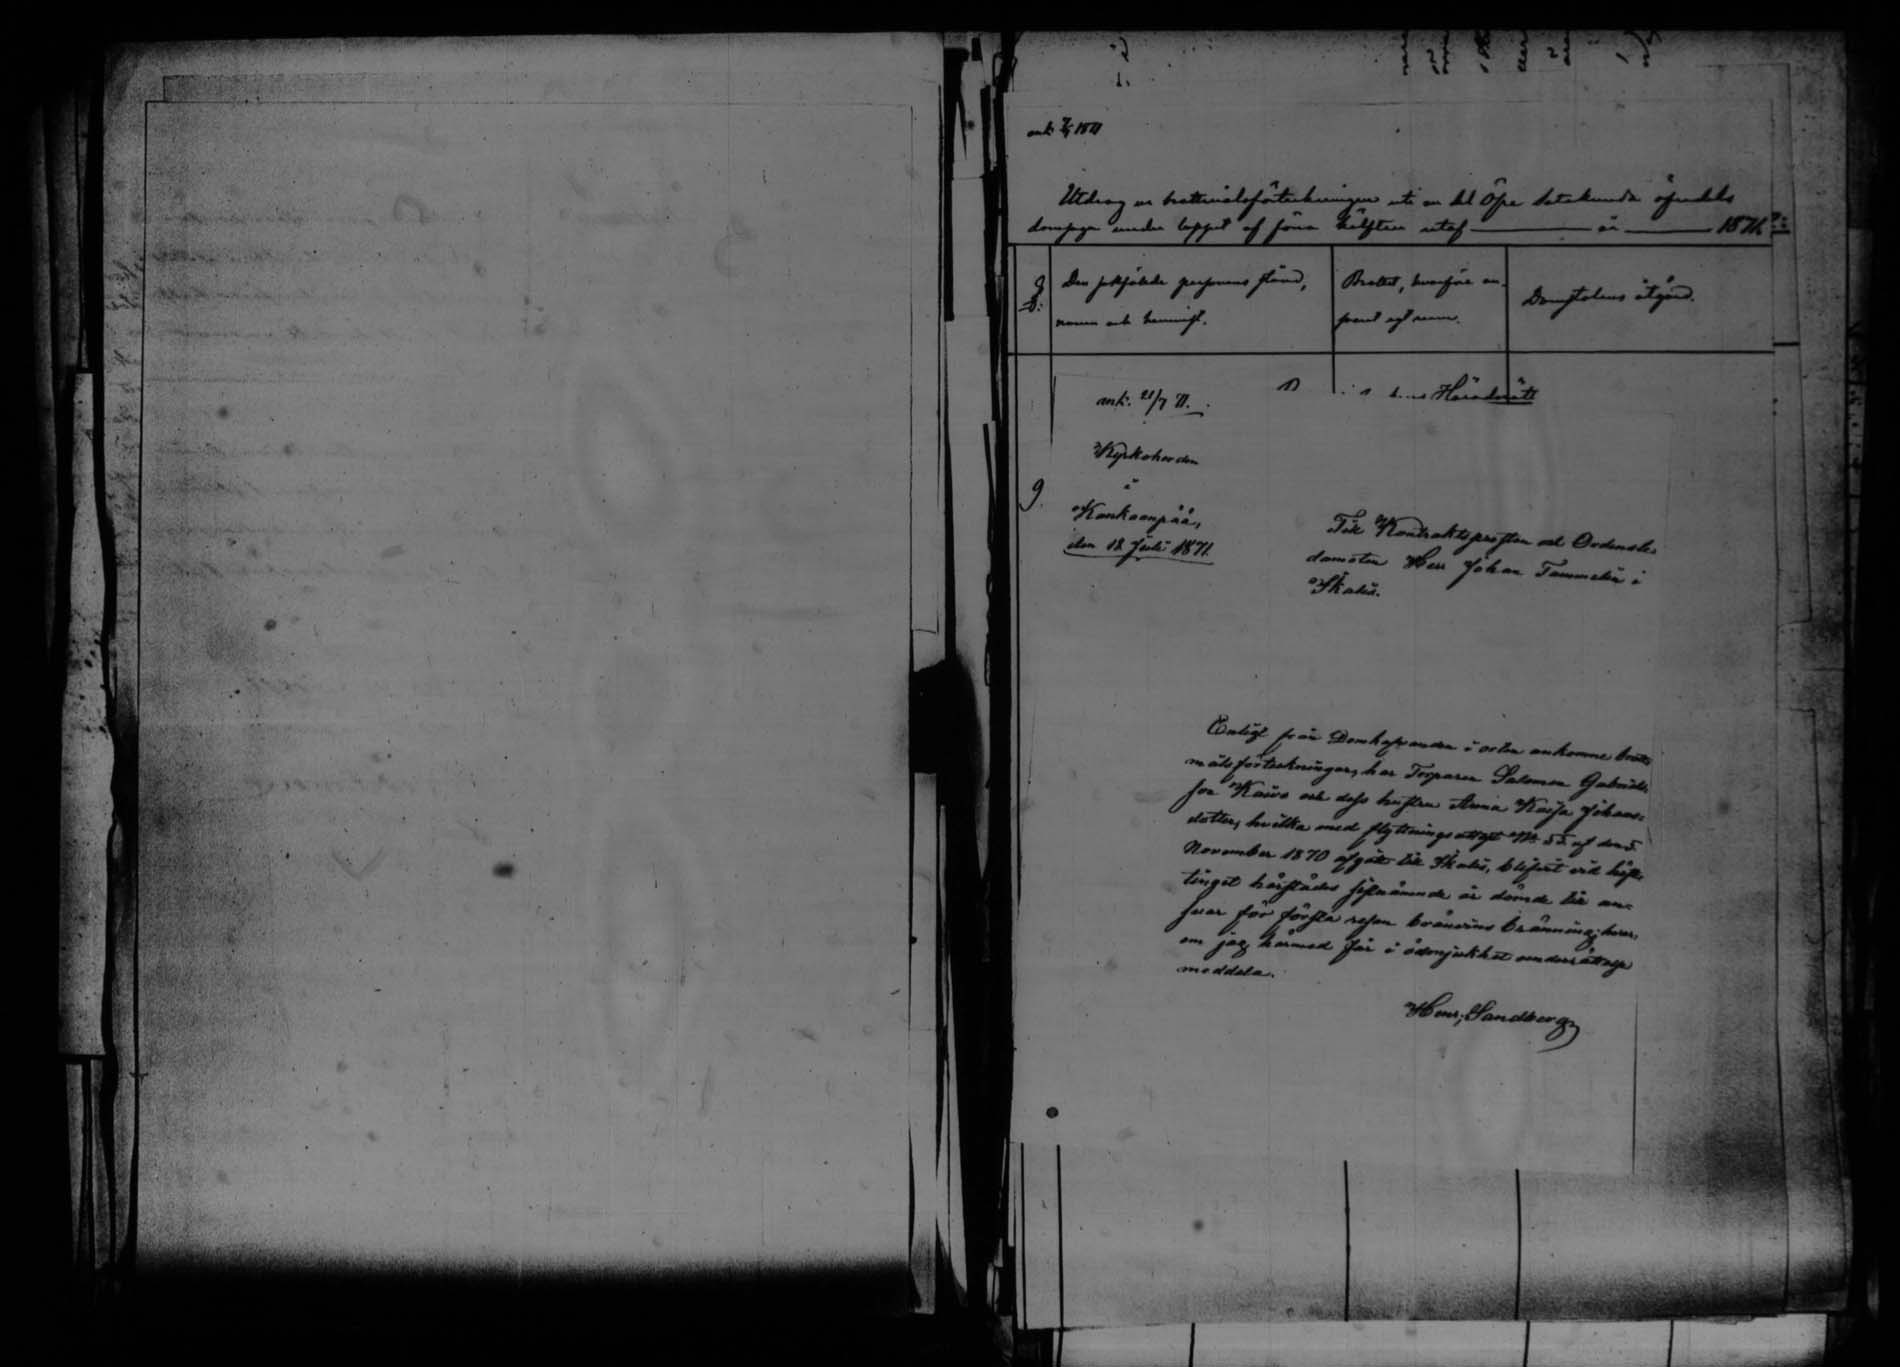 ank. 7/9 1871
Utdrag ur brottmålsförteckningen uti en del Öfre Satakunda öfredels
domsaga under loppet af förra hälften utaf år 1871.
Den sakfälde personens stånd,
namn och hemvist.
Brottet, hvarför an-
svar egt rum.
Domstolens åtgärd.
Häradsrätt
ank. 21/7 71.
Kyrkoherden
i
Kankaanpää,
den 18 Juli 1871.
9.
Till Kontraktsprosten och Ordensle-
damoten Herr Johan Tammelin i
Ikalis.
Enligt från Domhafvanden i orten ankomne brott-
målsförteckningar, har Torparen Salomon Gabriels-
son Kaivo och dess hustru Anna Kaisa Johans-
dotter, hvilka med flyttningsattest № 55 af den 5
November 1870 afgått till Ikalis, blifvit vid höste-
tinget härstädes sistnämnde år dömde till an-
svar för första resan bränvins bränning; hvar-
om jag härmed får i ödmjukhet underrättelse
meddela.
Henr. Sandberg